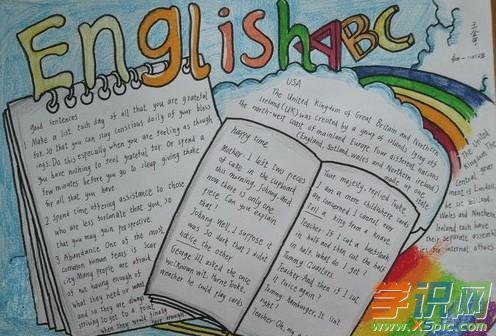 English ABC
good sentences
1 Make a list each day of all that you are grateful
for, so that you can stay conscious daily of your bless
ings. Do this especially when you are feeling as though
you have nothing to feel grateful for. Or spend a
few minutes before you go to sleep giving thanks
for all that you have.
2 Spend time offering assistance to those
who are less fortunate than you, so
that you may gain perspective.
3 Abundance. One of the most
common human fears is scar
city. Many people are afraid
of not having enough of
what they need or want
and so they are always
striving to get to a point
when they would finally enough
happy time
Mother: I left two pieces
of cake in the cupboard
this morning, Johnny. And
now there is only one
piece. Can you explain
that?
Johnny: Well, I suppose it
was so dark that I didn't
notice the other
George III asked the once
well-known wit, Horne Tooke,
whether he could play cards.
Your majesty, replied Tooke,
I am a more childishere as
are concerned I cannot even
tell a king from a knave.
Teacher: If I cut a beefsteak
in half and then cut the half
in half, what do I get?
Tommy: Quarters.
Teacher: And then if I cut
it twice again?
Tommy: hamburger. It isn't
right?
Teacher: Oh, my
USA
The United Kingdom of Great Britain and Northern
Ireland (UK) was created by a group of islands lying off
the north-west coast of mainland Europe. Four different nations
(England, Scotland, Wales and Northern Ireland)
make up one
state
The United
Kingdom. The
Central
government
is London
Wales and
Northern
Ireland each have
their separate assemb
for internal affairs.
学识网
www.XSpic.com